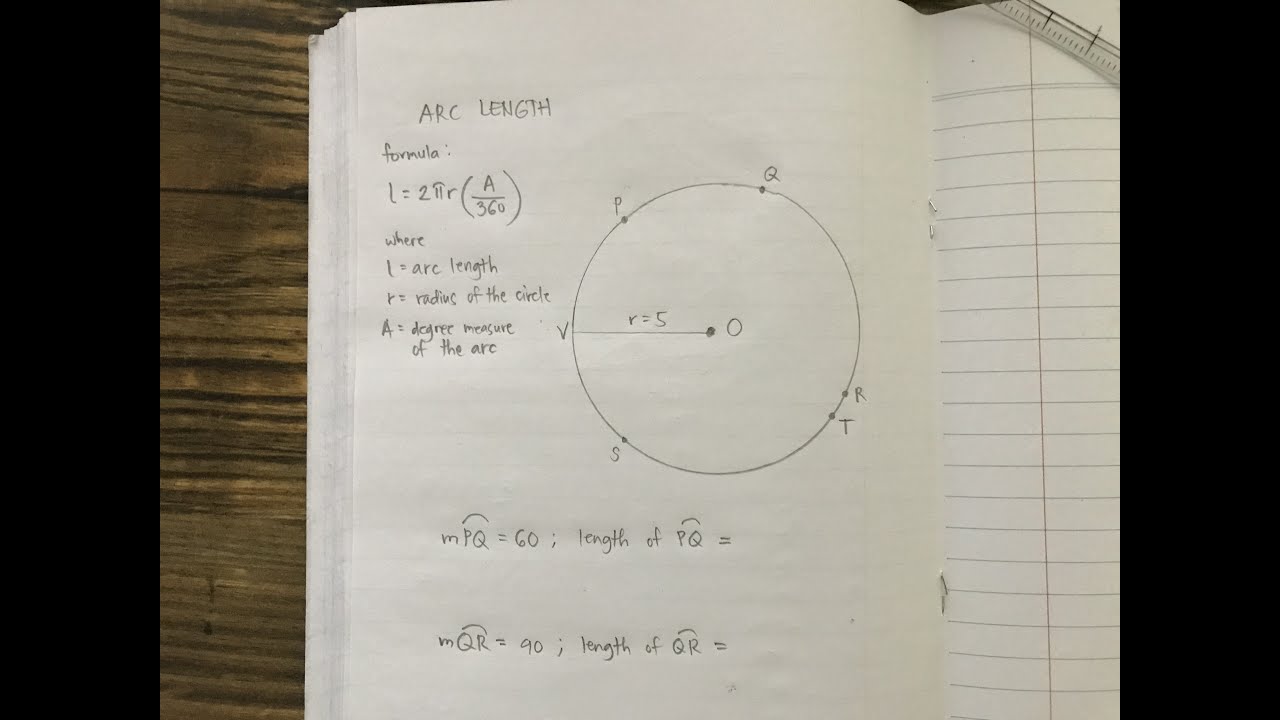 ARC LENGTH
formula:
l = 2πr(A/360)
where
l = arc length
r = radius of the circle
A = degree measure
of the arc
Q
P
V
r = 5
O
R
T
S
m⌒PQ = 60 ; length of ⌒PQ =
m⌒QR = 90 ; length of ⌒QR =